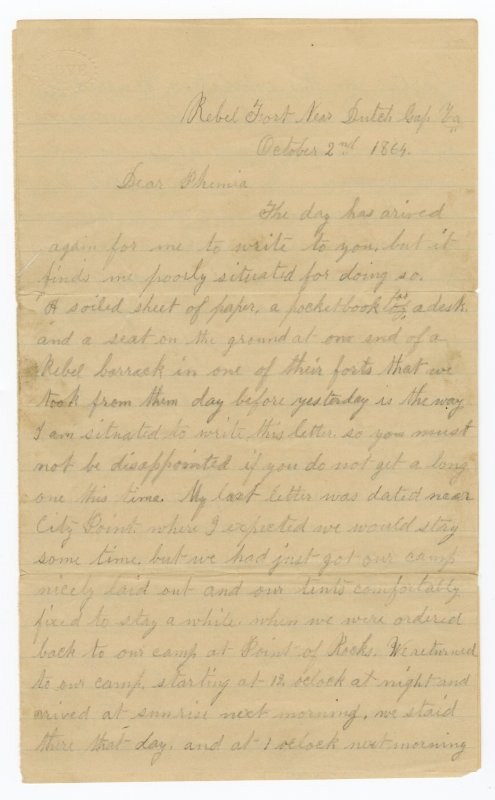 Rebel Fort Near Dutch Gap Va
October 2nd 1864.
Dear Phemia
The day has arived
again for me to write to you, but it
finds me poorly situated for doing so.
A soiled sheet of paper, a pocketbook for a desk
and a seat on the ground at one end of a
Rebel barrack in one of their forts that we
took from them day before yesterday is the way
I am situated to write this letter so you must
not be disappointed if you do not get a long
one this time. My last letter was dated near
City Point, where I expected we would stay
some time, but we had just got our camp
nicely laid out and our tents comfortably
fixed to stay a while when we were ordered
back to our camp at Point of Rocks. We returned
to our camp, starting at 12. oclock at night and
arived at sunrise next morning, we staid
there that day, and at 1 oclock next morning